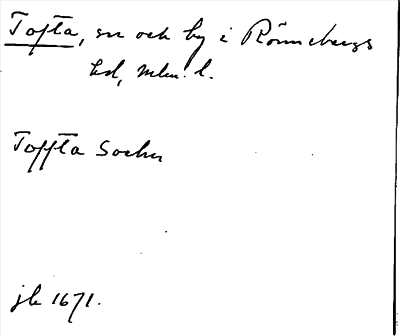 Tofta, sn och by i Rönnebergs
hd, Mlm. l.
Toffta Sochn
jb 1671.